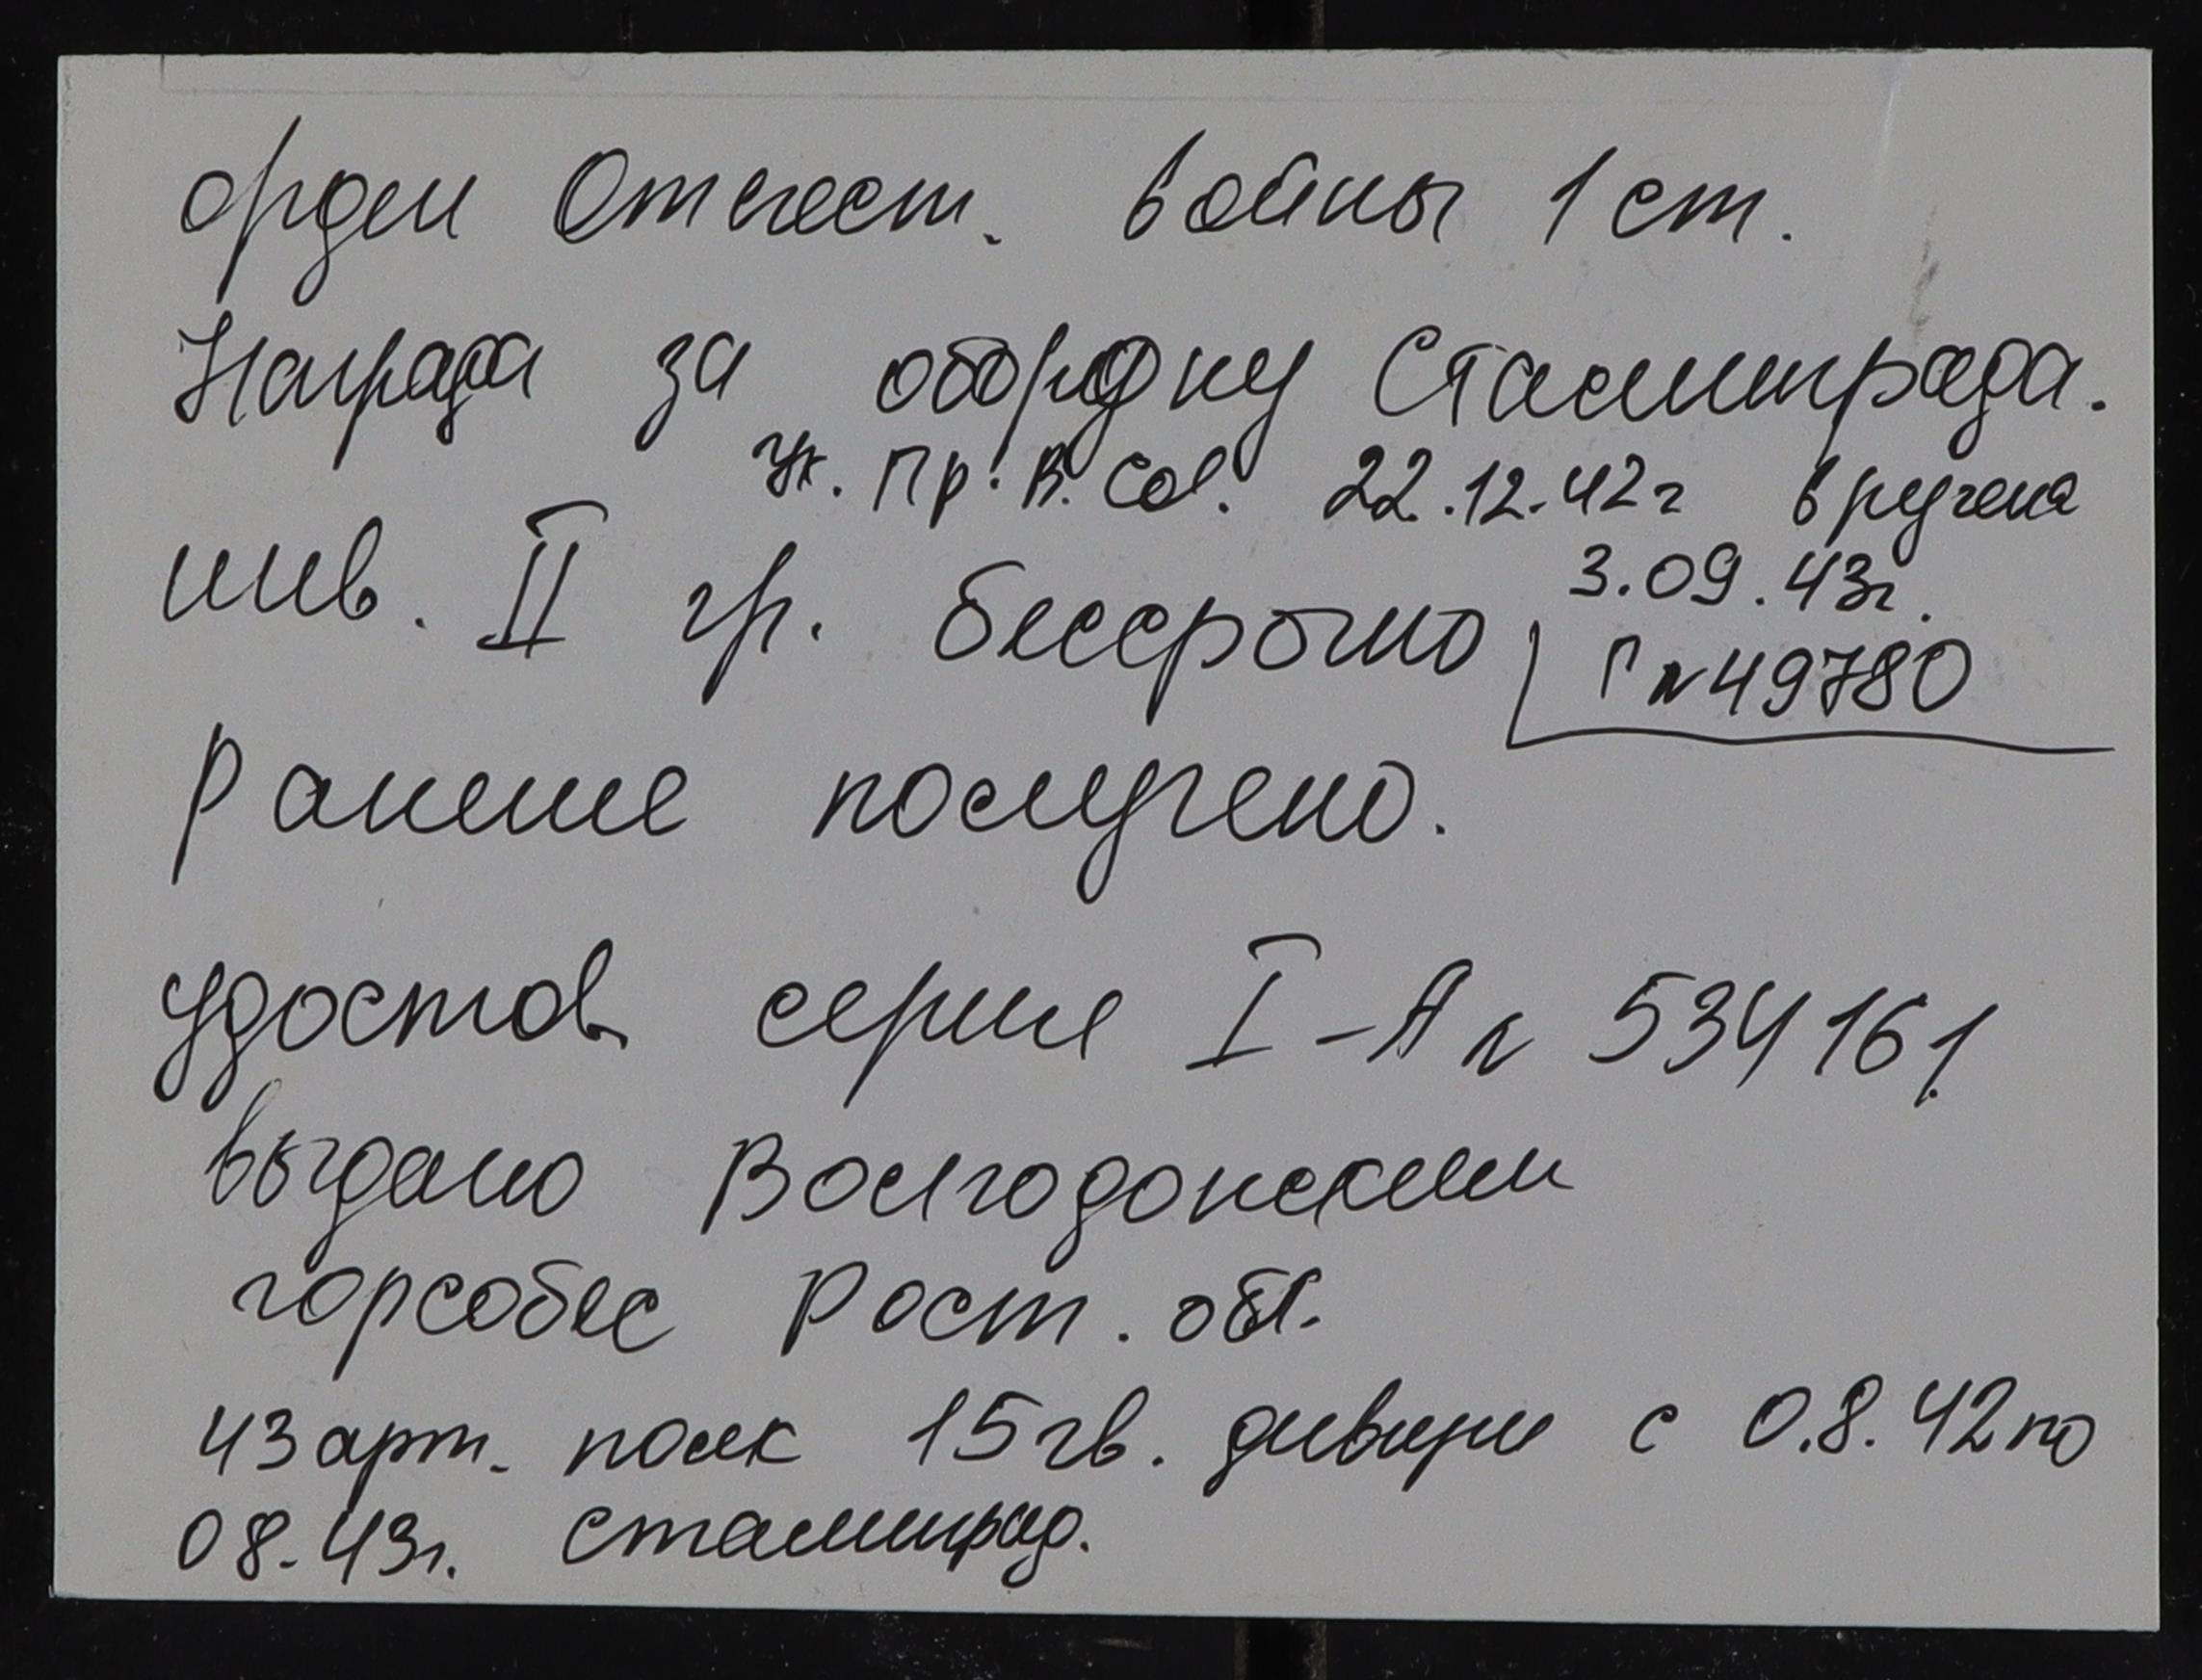 орден Отечест. войны 1 ст.
Награда за оборону Сталинграда.
Ук. Пр. В. Сов. 22.12.42г вручена
3.09.43г.
инв. II гр. бессрочно
Г №49780
Ранение получено.
удостов серия I-А № 534161
выдано Волгодонским
горсобес Рост. обл.
43 арт. полк 15 гв. дивизии с 0.8.42 по
08.43г. Сталинград.